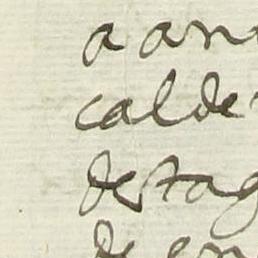 a an
calde
destag
de en